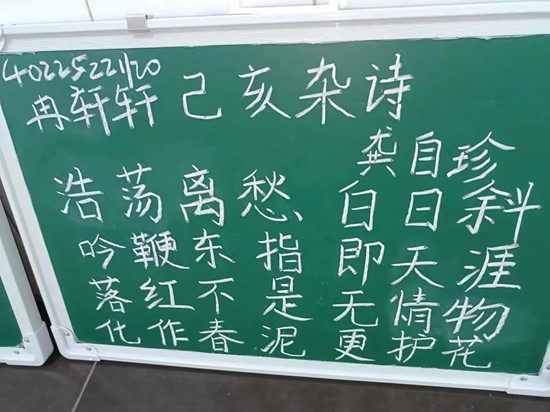 40225221120
冉轩轩 己亥杂诗
龚自珍
浩荡离愁白日斜
吟鞭东指即天涯
落红不是无情物
化作春泥更护花